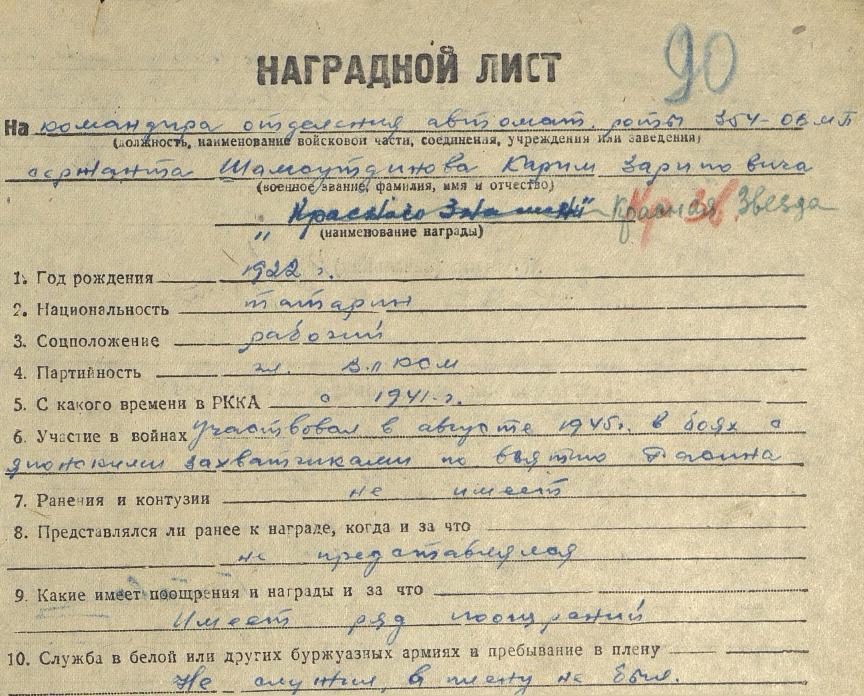 90
НАГРАДНОЙ ЛИСТ
На командира отделения автомат. роты 354-ОБМП
(должность, наименование войсковой части, соединения, учреждения или заведения)
сержанта Шамоутдинова Карим Зариповича
(военное звание, фамилия, имя и отчество)
"Красного Знамени" Красная Звезда
(наименование награды)
1. Год рождения 1922 г.
2. Национальность татарин
3. Соцположение рабочий
4. Партийность чл. ВЛКСМ
5. С какого времени в РККА с 1941-г.
6. Участие в войнах Участвовал в августе 1945г. в боях с
японскими захватчиками по взятию
7. Ранения и контузии не имеет
8. Представлялся ли ранее к награде, когда и за что
не представлялся
9. Какие имеет поощрения и награды и за что
Имеет ряд поощрений
10. Служба в белой или других буржуазных армиях и пребывание в плену
Не служил, в плену не был.